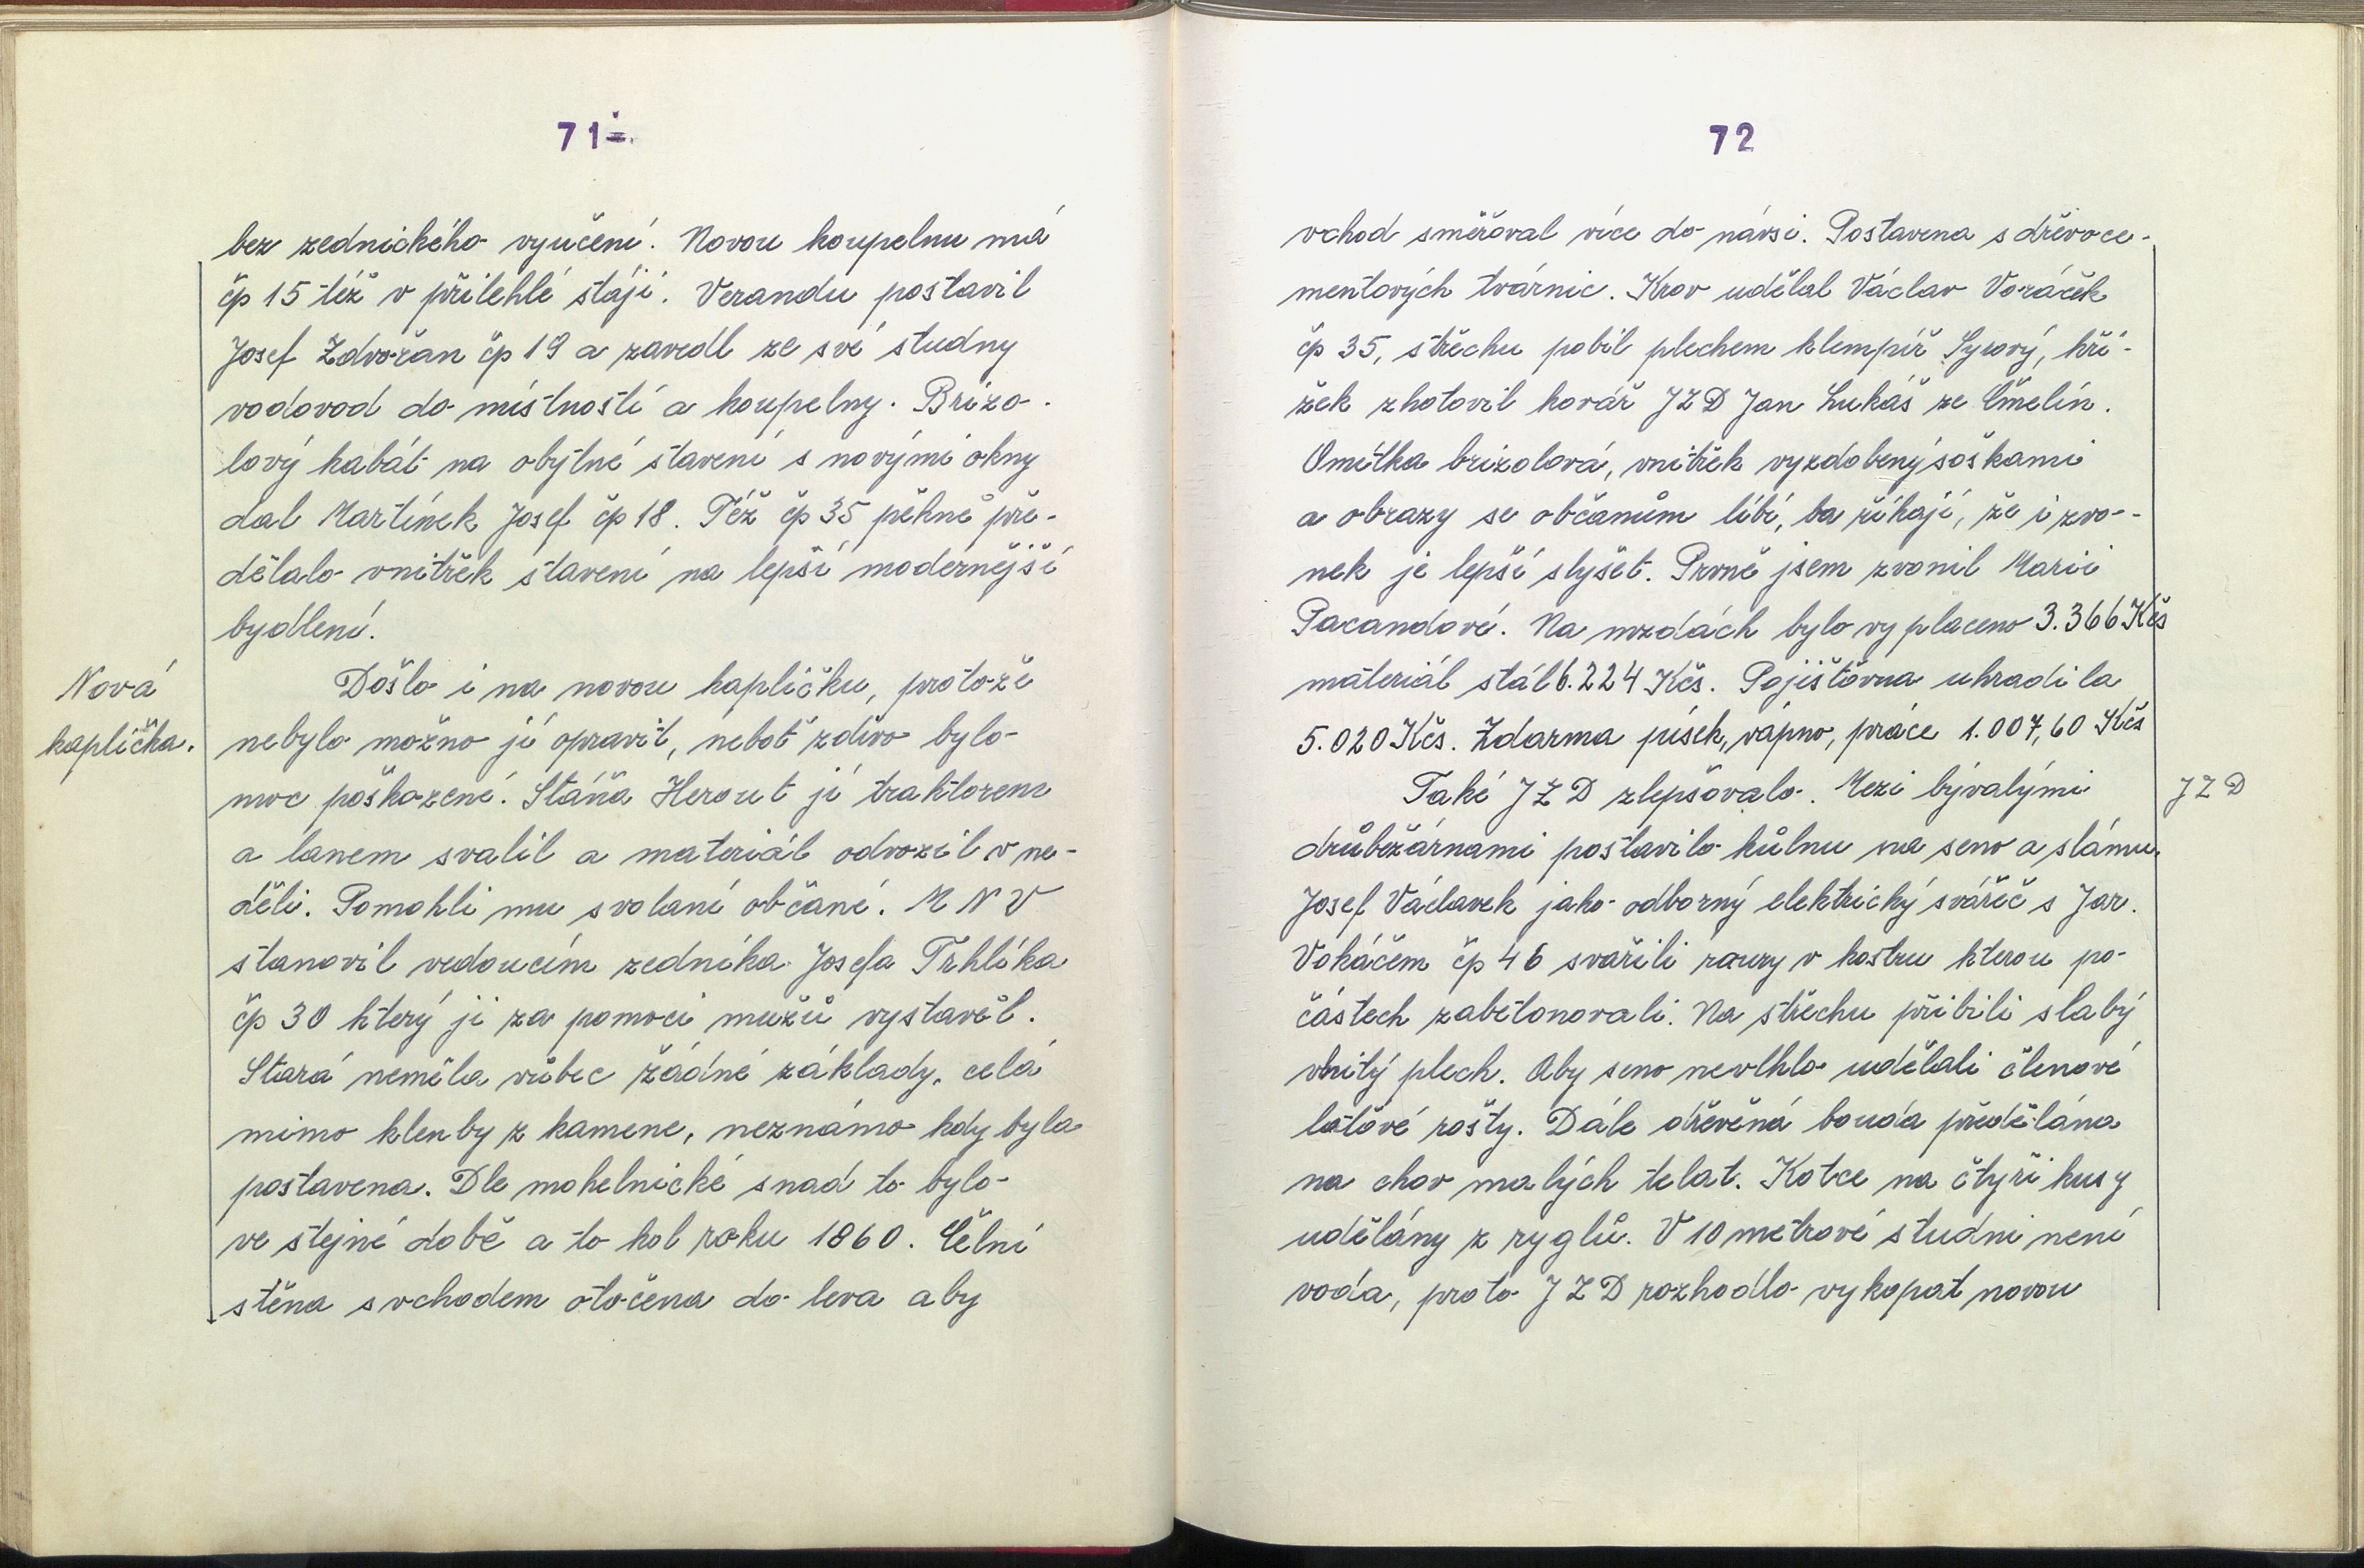 71
bez zednického vyučení. Novou koupelnu má
čp 15 též v přilehlé stáji. Verandu postavil
Josef Zdvořan čp 19 a zavedl ze své studny
vodovod do místností a koupelny. Brizo-
lový kabát na obytné stavení s novými okny
dal Martínek Josef čp 18. Též čp 35 pěkně pře-
dělalo vnitřek stavení na lepší modernější
bydlení.
Nová
kaplička.
Došlo i na novou kapličku, protože
nebylo možno jí opravit, neboť zdivo bylo
moc poškozené. Stáňa Herout jí traktorem
a lanem svalil a materiál odvozil v ne-
děli. Pomohli mu svolaní občané. M N V
stanovil vedoucím zedníka Josefa Trhlíka
čp 30 který ji za pomoci mužů vystavěl.
Stará neměla vůbec žádné základy, celá
mimo klenby z kamene, neznámo kdy byla
postavena. Dle mohelnické snad to bylo
ve stejné době a to kol roku 1860. Čelní
stěna s vchodem otočena do leva aby
72
vchod směřoval více do návsi. Postavena s dřevoce-
mentových tvárnic. Krov udělal Václav Voráček
čp 35, střechu pobil plechem klempíř Syrový, kří-
žek zhotovil kovář JZD Jan Lukáš ze Čmelín.
Omítka brizolová, vnitřek vyzdobený soškami
a obrazy se občanům líbí, ba říkají, že i zvo-
nek je lepší slyšet. Prvně jsem zvonil Marii
Pacandové. Na mzdách bylo vyplaceno 3.366 Kčs
materiál stál 6.224 Kčs. Pojišťovna uhradila
5.020 Kčs. Zdarma písek, vápno, práce 1.007,60 Kčs
Také JZD zlepšovalo. Mezi bývalými
JZD
drůbežárnami postavilo kůlnu na seno a slámu.
Josef Václavek jako odborný elektrický svářeč s Jar.
Vokáčem čp 46 svařili roury v kostru kterou po
částech zabetonovali. Na střechu přibili slabý
vlnitý plech. Aby seno nevlhlo udělali členové
laťové rošty. Dále dřevěná bouda předělána
na chov malých telat. Kotce na čtyři kusy
udělány z ryglů. V 10 metrové studni není
voda, proto JZD rozhodlo vykopat novou